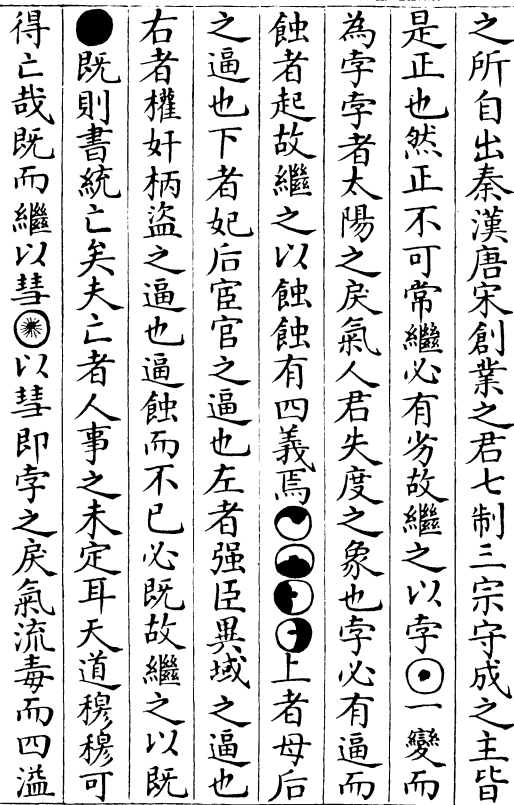 之所自出秦漢唐宋創業之君七制三宗守成之主皆
是正也然正不可常繼必有劣故繼之以孛一變而
為孛孛者太陽之戾氣人君失度之象也孛必有逼而
蝕者起故繼之以蝕蝕有四義焉上者母后
之逼也下者妃后宦官之逼也左者强臣異域之逼也
右者權奸柄盜之逼也逼蝕而不已必既故繼之以既
既則書統亡矣夫亡者人事之未定耳天道穆穆可
得亡哉既而繼以彗以彗即孛之戾氣流毒而四溢